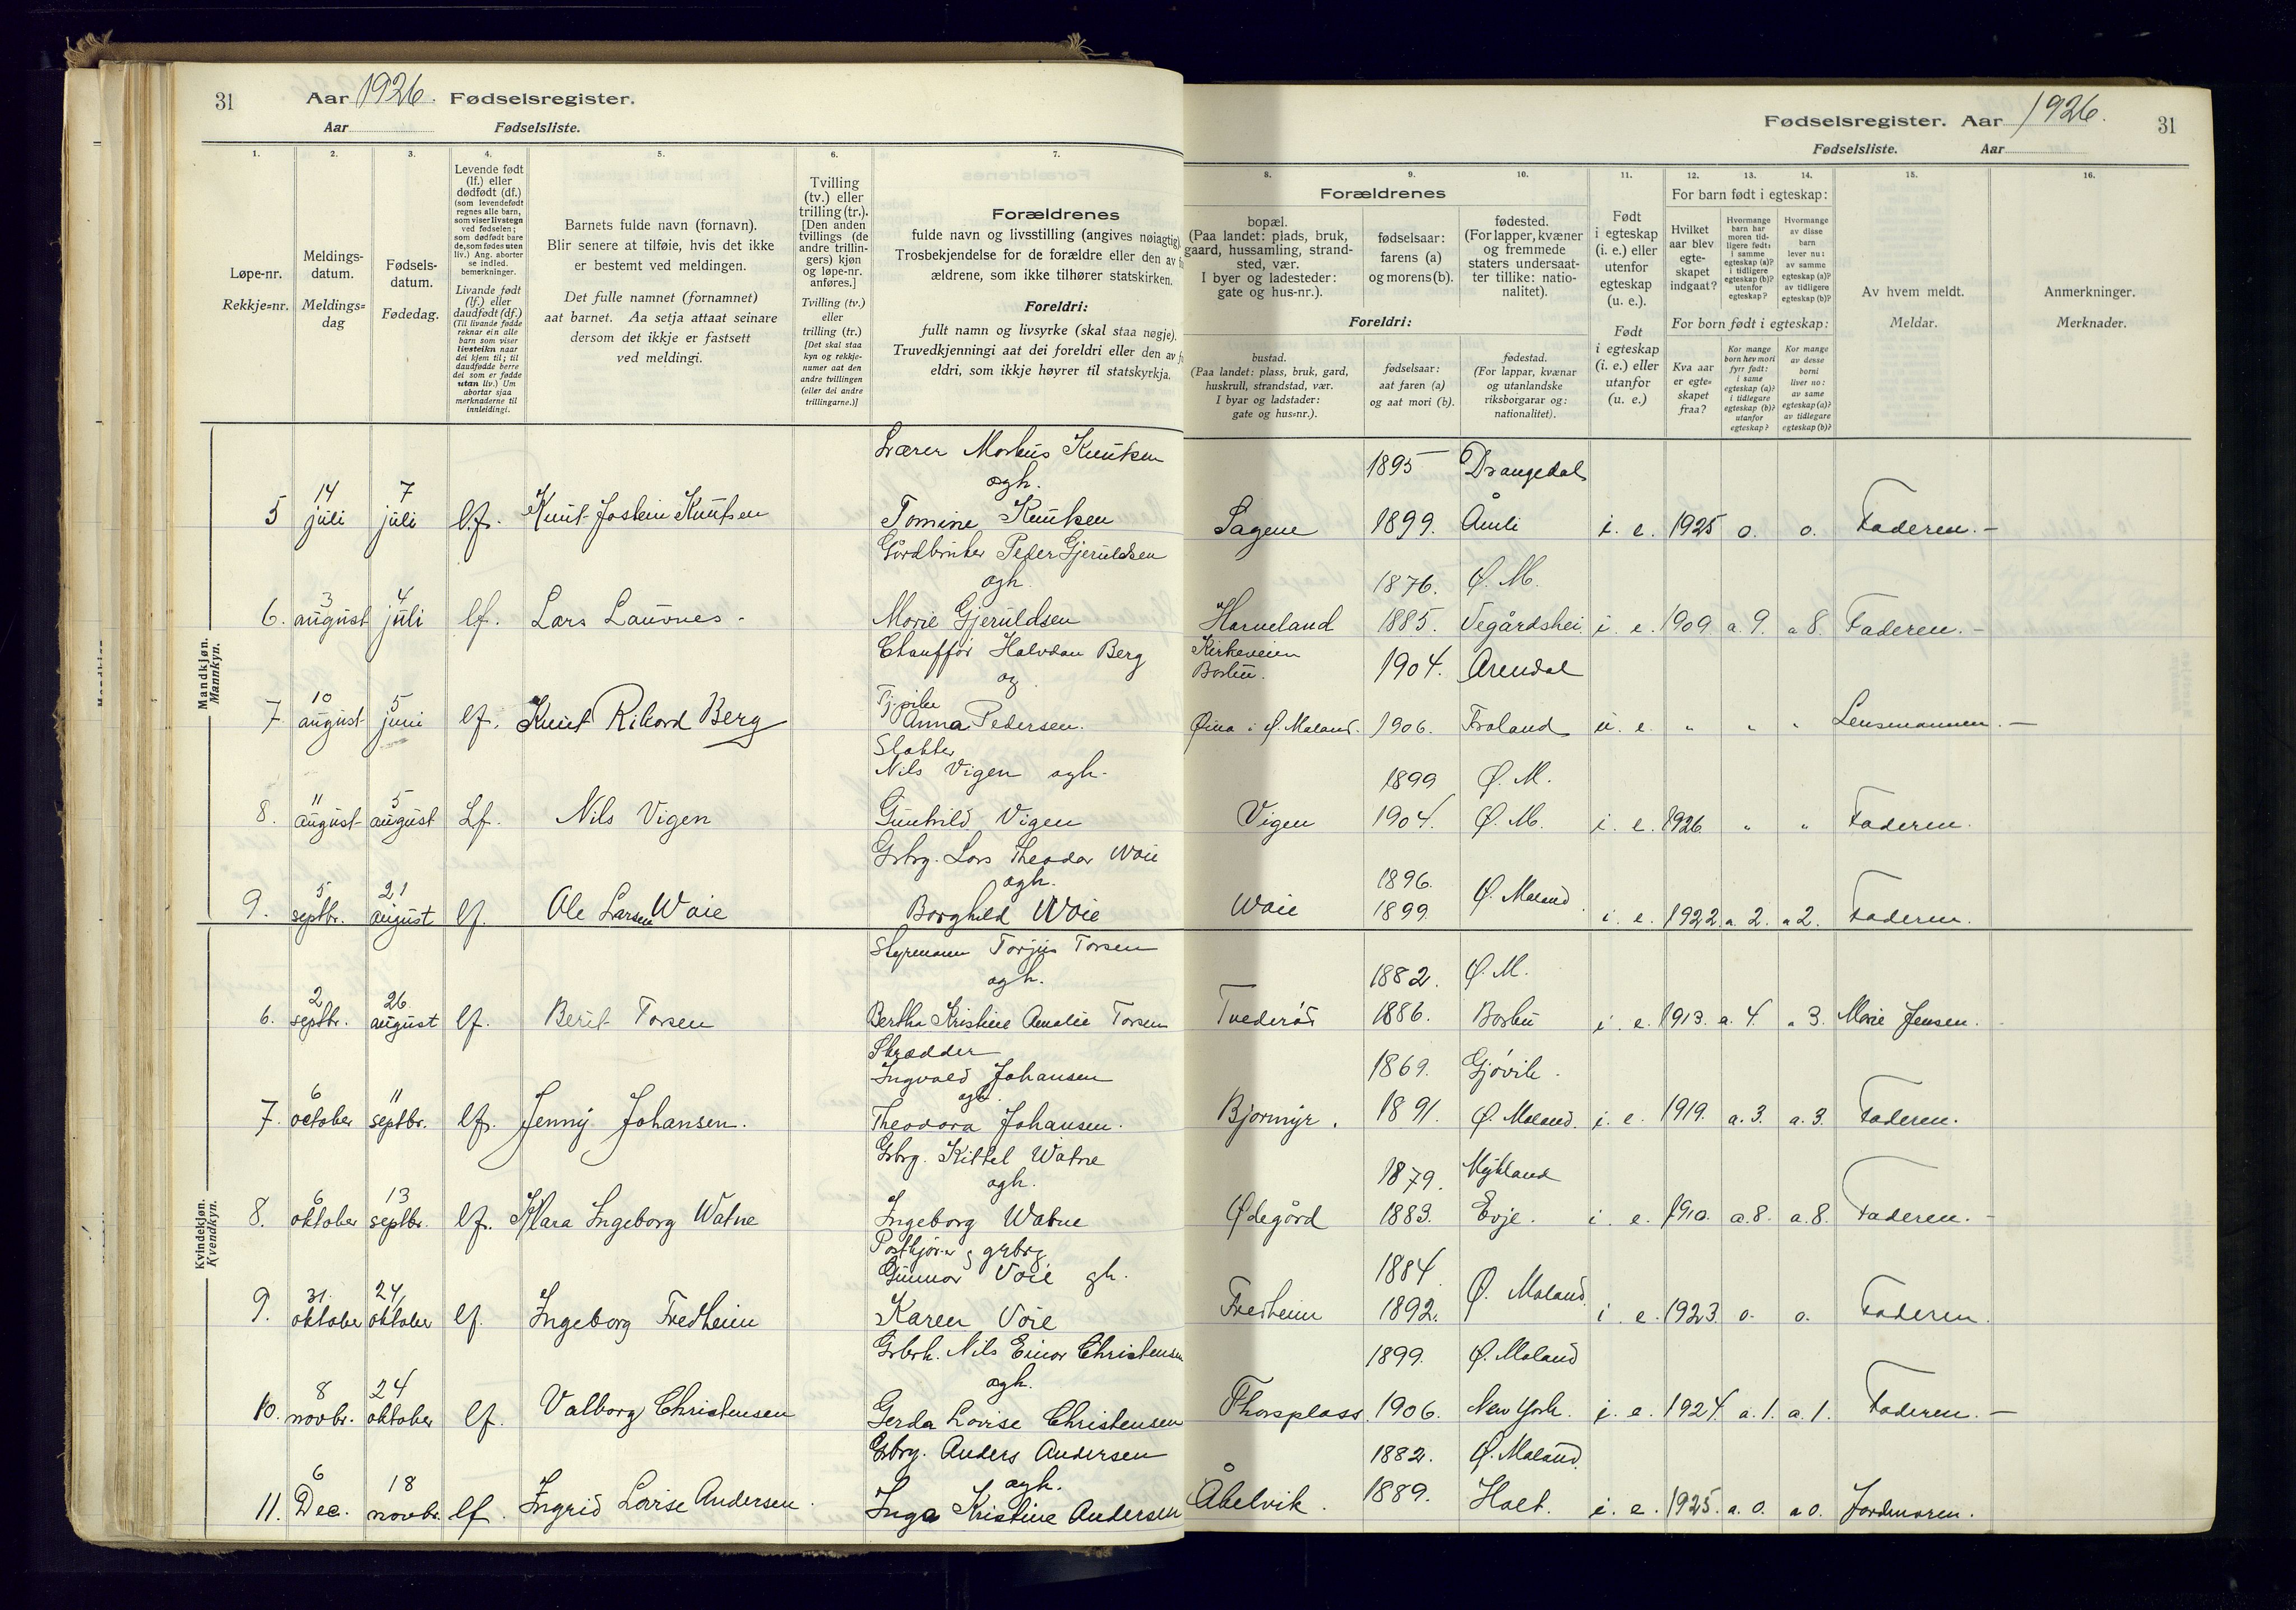 31 Aar 1926. Fødselsregister.
Aar Fødselsliste.
1. 2. 3. 4. 5. 6. 7.
Løpe-nr.
Rekkje=nr.
Meldings-
datum.
Meldings=
dag
Fødsels-
datum.
Fødedag.
Levende født
(lf.) eller
dødfødt (df.)
(som levendefødt
regnes alle barn,
som viser livstegn
ved fødselen;
som dødfødt bare
de, som fødes uten
liv.) Ang. aborter
se indled.
bemerkninger.
Livande født
(lf.) eller
daudfødt (df.)
(Til livande fødde
reknar ein alle
barn som viser
livsteikn naar
dei kjem til; til
daudfødde berre
dei som er fødde
utan liv.) Um
abortar sjaa
merknaderne til
innleidingi.
Barnets fulde navn (fornavn).
Blir senere at tilføie, hvis det ikke
er bestemt ved meldingen.
Det fulle namnet (fornamnet)
aat barnet. Aa setja attaat seinare
dersom det ikkje er fastsett
ved meldingi.
Tvilling
(tv.) eller
trilling (tr.).
[Den anden
tvillings (de
andre trillin-
gers) kjøn
og løpe-nr.
anføres.]
Tvilling (tv.)
eller
trilling (tr.)
[Det skal staa
kyn og rekkje-
numer aat den
andre tvillingen
(eller dei andre
trillingarne.)]
Forældrenes
fulde navn og livsstilling (angives nøiagtig).
Trosbekjendelse for de forældre eller den av
ældrene, som ikke tilhører statskirken.
Foreldri:
fullt namn og livsyrke (skal staa nøgje).
Truvedkjenningi aat dei foreldri eller den av
eldri, som ikkje høyrer til statskyrkja.
Mandkjøn.
Mannkyn.
Lærer Morbus Knutsen
ogh.
14 7
5 juli juli l.f. Knut Jostein Knutsen Tomine Knutsen
Gårdbruker Peder Gjeruldsen
ogh.
3 4
6. august juli lf. Lars Lauvnes - Marie Gjeruldsen
Chauffør Halvdan Berg
og
10 5 Tj.pike
7. august juni lf. Knut Rikard Berg Anna Pedersen.
Slakter
Nils Vigen ogh.
11 5
8. august august Lf. Nils Vigen Gunhild Vigen
Grbrg. Lars Theodor Woie
ogh.
5 21
9. septbr. august lf. Ole Larsen Woie Borghild Woie
Kvindekjøn.
Kvendkyn.
Styrmann Torjus Torsen
ogh.
2 26
6. septbr. august lf. Berit Torsen Bertha Kristine Amalie Torsen
Skrædder
Ingvald Johansen
ogh.
6 11
7. october septbr. lf. Jenny Johansen. Theodora Johansen.
Grbrg. Kittel Watne
ogh.
6 13
8. oktober septbr. lf. Klara Ingeborg Watne Ingeborg Watne
Postkjører og grbrg.
Gunnar Voie gh.
31. 24
9. oktober oktober lf. Ingeborg Fredheim Karen Voie
Grbrk. Nils Einar Christensen
ogh.
8 24
10. novbr. oktober lf. Valborg Christensen Gerda Lovise Christensen
Grbrg. Anders Andersen
ogh.
6 18
11. Dec. novbr. lf. Ingrid Lovise Andersen. Inga Kristine Andersen
Fødselsregister. Aar 1926. 31
Fødselsliste. Aar
8. 9. 10. 11. 12. 13. 14. 15. 16.
Forældrenes
bopæl.
(Paa landet: plads, bruk,
gaard, hussamling, strand-
sted, vær.
I byer og ladesteder:
gate og hus-nr.).
fødselsaar:
farens (a)
og morens (b).
fødested.
(For lapper, kvæner
og fremmede
staters undersaat-
ter tillike: natio-
nalitet).
Foreldri:
bustad.
(Paa landet: plass, bruk, gard,
huskrull, strandstad, vær.
I byar og ladstader:
gate og hus=nr.).
fødselsaar:
aat faren (a)
og aat mori (b).
fødestad.
(For lappar, kvænar
og utanlandske
riksborgarar og:
nationalitet).
Født
i egteskap
(i. e.) eller
utenfor
egteskap
(u. e.).
Født
i egteskap
(i. e.) eller
utanfor
(u. e.)
For barn født i egteskap:
Hvilket
aar blev
egte-
skapet
indgaat?
Hvormange
barn har
moren tid-
ligere født:
i samme
egteskap (a)?
i tidligere
egteskap (b)?
utenfor
egteskap?
Hvormange
av disse
barn
lever nu:
av samme
egteskap (a)?
av tidligere
egteskap (b)?
For born født i egteskap:
Kva aar
er egte=
skapet
fraa?
Kor mange
born hev mori
fyrr født:
i same
egteskap (a)?
i tidlegare
egteskap (b)?
utanfor
egteskap?
Kor mange
av desse
borni
liver no:
av same
egteskap (a)?
av tidlegare
egteskap (b)?
Av hvem meldt.
Meldar.
Anmerkninger.
Merknader.
1895 Drangedal
Sagene 1899. Åmli i. e. 1925 o. o. Faderen. -
1876. Ø. M.
Harveland 1885. Vegårdshei. i. e. 1909 a. 9. a 8. Faderen. -
Kirkeveien
Barbu. 1904. Arendal
Øina i Ø. Moland. 1906. Froland u. e. " " " Lensmannen. -
1899 Ø. M.
Vigen 1904. Ø. M. i. e. 1926 " " Faderen.
1896.
Woie 1899. Ø. Moland. i. e. 1922 a. 2. a 2. Faderen.
1882. Ø. M.
Tvederøs 1886. Barbu i. e. 1913. a. 4. " 3. Marie Jensen.
1869. Gjøvik.
Bjormyr. 1891. Ø. Moland. i. e. 1919. a. 3. a. 3. Faderen.
1879. Mykland
Ødegård 1883. Evje. i. e. 1910. a. 8. a. 8. Faderen. -
1884
Fredheim 1892. Ø. Moland. i. e. 1923. o. o. Faderen.
1899. Ø. Moland
Thorsplass. 1906. New York. i. e. 1924. a. 1. a. 1. Faderen. -
1882. Ø. Moland.
Åkelvik. 1889. Holt. i. e. 1925. a. 0. a 0. Jordmoren.